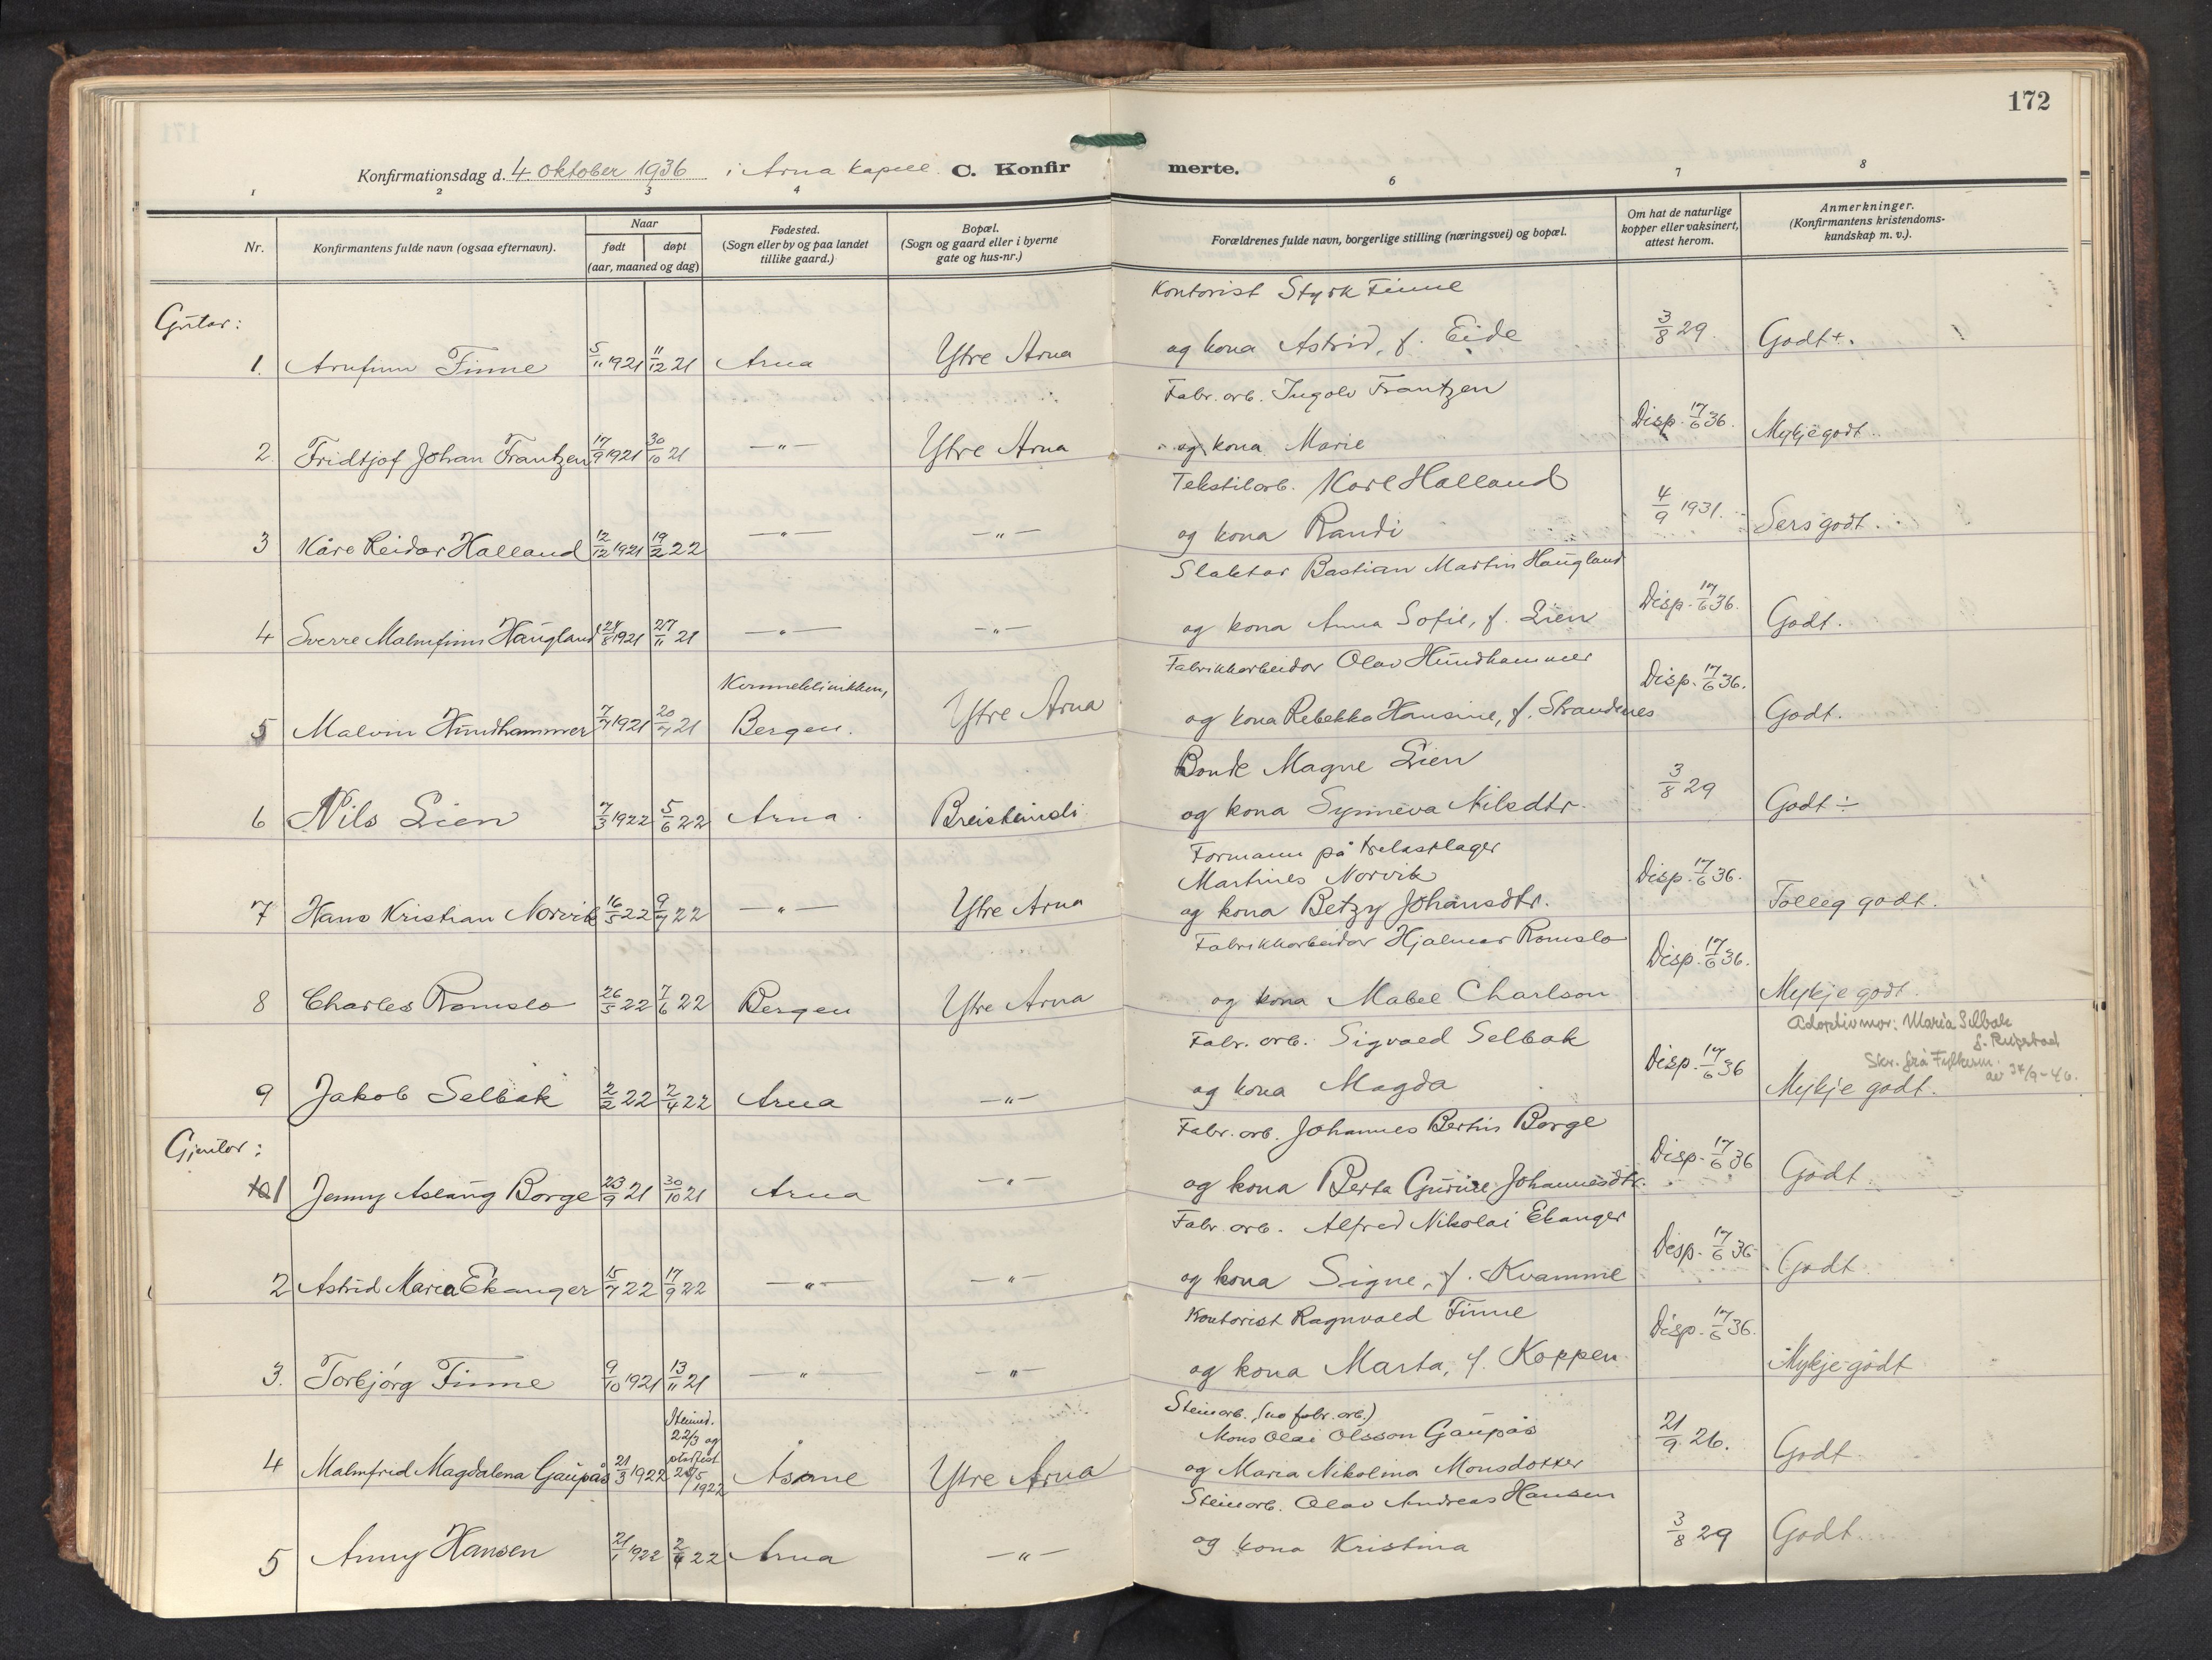 172
Konfirmationsdag d. 4. oktober 1936 i Arna kapell C. Konfirmerte.
1 2 3 4 6 7 8
Nr.
Konfirmantens fulde navn (ogsaa efternavn).
Naar
født døpt
(aar, maaned og dag)
Fødested.
(Sogn eller by og paa landet
tillike gaard.)
Bopæl.
(Sogn og gaard eller i byerne
gate og hus-nr.)
Forældrenes fulde navn, borgerlige stilling (næringsvei) og bopæl.
Om hat de naturlige
kopper eller vaksinert,
attest herom.
Anmerkninger.
(Konfirmantens kristendoms-
kundskap m. v.).
Gutar:
Kontorist Styrk Finne
1. Arnfinn Finne 5/11 1921 11/12 21 Arna Ytre Arna og kona Astrid, f. Eide 3/8 29. Godt+.
Fabr. arb. Ingolv Frantzen
2. Fridtjof Johan Frantzen 17/9 1921 30/10 21 —"— Ytre Arna og kona Marie Disp. 17/6 36. Mykje godt.
Tekstilarb. Karl Halland
3 Kåre Reidar Halland 12/12 1921 19/2 22 —"— —"— og kona Randi 4/9 1931. Sers godt.
Slaktar Bastian Martin Haugland
4 Sverre Malmfinn Haugland 24/8 1921 27/11 21 —"— —"— og kona Anna Sofie, f. Lien Disp. 17/6 36. Godt.
Fabrikkarbeidar Olav Hundhammer
5 Malvin Hundhammer 7/4 1921 20/7 21 Kvinneklinikken, Bergen. Ytre Arna og kona Rebekka Hansine, f. Strandenes Disp. 17/6 36. Godt.
Bonde Magne Lien
6 Nils Lien 7/3 1922 5/6 22 Arna. Breisteindi og kona Synneva Nilsdtr. 3/8 29 Godt ÷
Formann på trelastlager
Martines Norvik
7 Hans Kristian Norvik 16/5 22 9/7 22 —"— Ytre Arna og kona Betzy Johansdtr. Disp. 17/6 36. Tolleg godt.
Fabrikkarbeidar Hjalmar Romslo
8 Charles Romslo 26/5 22 7/6 22 Bergen Ytre Arna og kona Mabel Charlson Disp. 17/6 36. Mykje godt.
Adoptivmor: Maria Selbak
Skr. frå Fylkesm.
Fabr. arb. Sigvald Selbak
9 Jakob Selbak 2/2 22 2/4 22 Arna —"— og kona Magda Disp. 17/6 36 Mykje godt.
Gjentor:
Fabr. arb. Johannes Bertin Borge
1 Jenny Aslaug Borge 23/9 21 30/10 21 Arna —"— og kona Berta Gurine Johannesdtr. Disp. 17/6 36 Godt
Fabr. arb. Alfred Nikolai Ekanger
2 Astrid Maria Ekanger 15/7 22 17/9 22 —"— —"— og kona Signe, f. Kvamme Disp. 17/6 36 Godt
Kontorist Ragnvald Finne
3. Torbjørg Finne 9/10 1921 13/11 21 —"— —"— og kona Marta, f. Koppen Disp. 17/6 36. Mykje godt
Steinarb. (no fabr. arb.)
Mons Olai Olsson Gaupås
4 Malmfrid Magdalena Gaupås 21/3 1922 Heimed. 22/3 og stadfest 28/5 1922 Åsane Ytre Arna og Maria Nikolina Monsdotter 21/9 26. Godt
Steinarb. Olav Andreas Hansen
5 Anny Hansen 21/1 1922 2/4 22 Arna —"— og kona Kristina 3/8 29 Godt